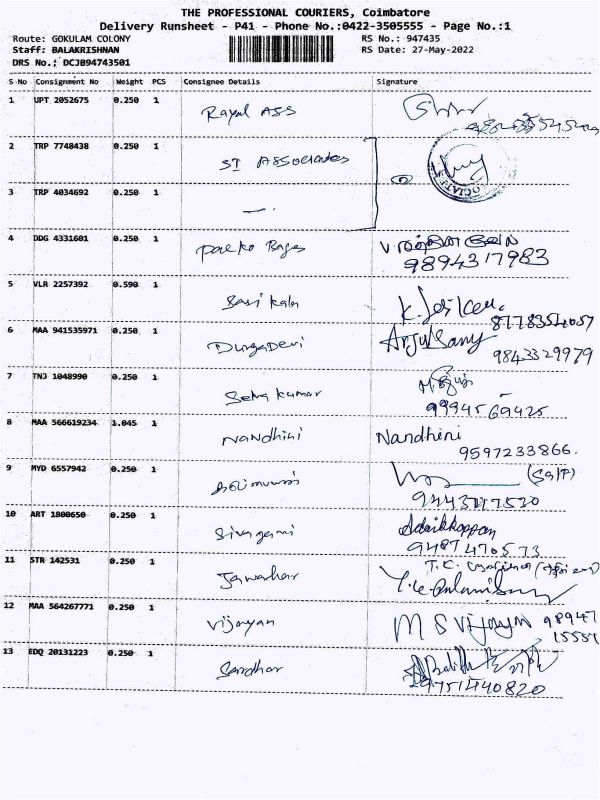 THE PROFESSIONAL COURIERS, Coimbatore
Delivery Runsheet - P41 - Phone No.:0422-3505555 - Page No.:1
Route: GOKULAM COLONY RS No.: 947435
Staff: BALAKRISHNAN RS Date: 27-May-2022
DRS No.: DCJB94743501
S No Consignment No Weight PCS Consignee Details Signature
1 UPT 2052675 0.250 1 Rayal ASS
2 TRP 7748438 0.250 1 SI Associates
3 TRP 4034692 0.250 1
4 DDG 4331601 0.250 1
9894317983
5 VLR 2257392 0.590 1 Sasi kala
8778354057
6 MAA 941535971 0.250 1 DurgaDevi
9843329979
7 TNJ 1048990 0.250 1 Selva kumar
9994569425
8 MAA 566619234 1.045 1 Nandhini Nandhini
9597233866.
9 MYD 6557942 0.250 1
10 ART 1800650 0.250 1 Sivagami Adaikkappan
9487470573
11 STR 142531 0.250 1 Jawahar T.K.
12 MAA 564267771 0.250 1 Vijayan M S Vijayan 98947
15551
13 EDQ 20131223 0.250 1 Sandhar
9751440820